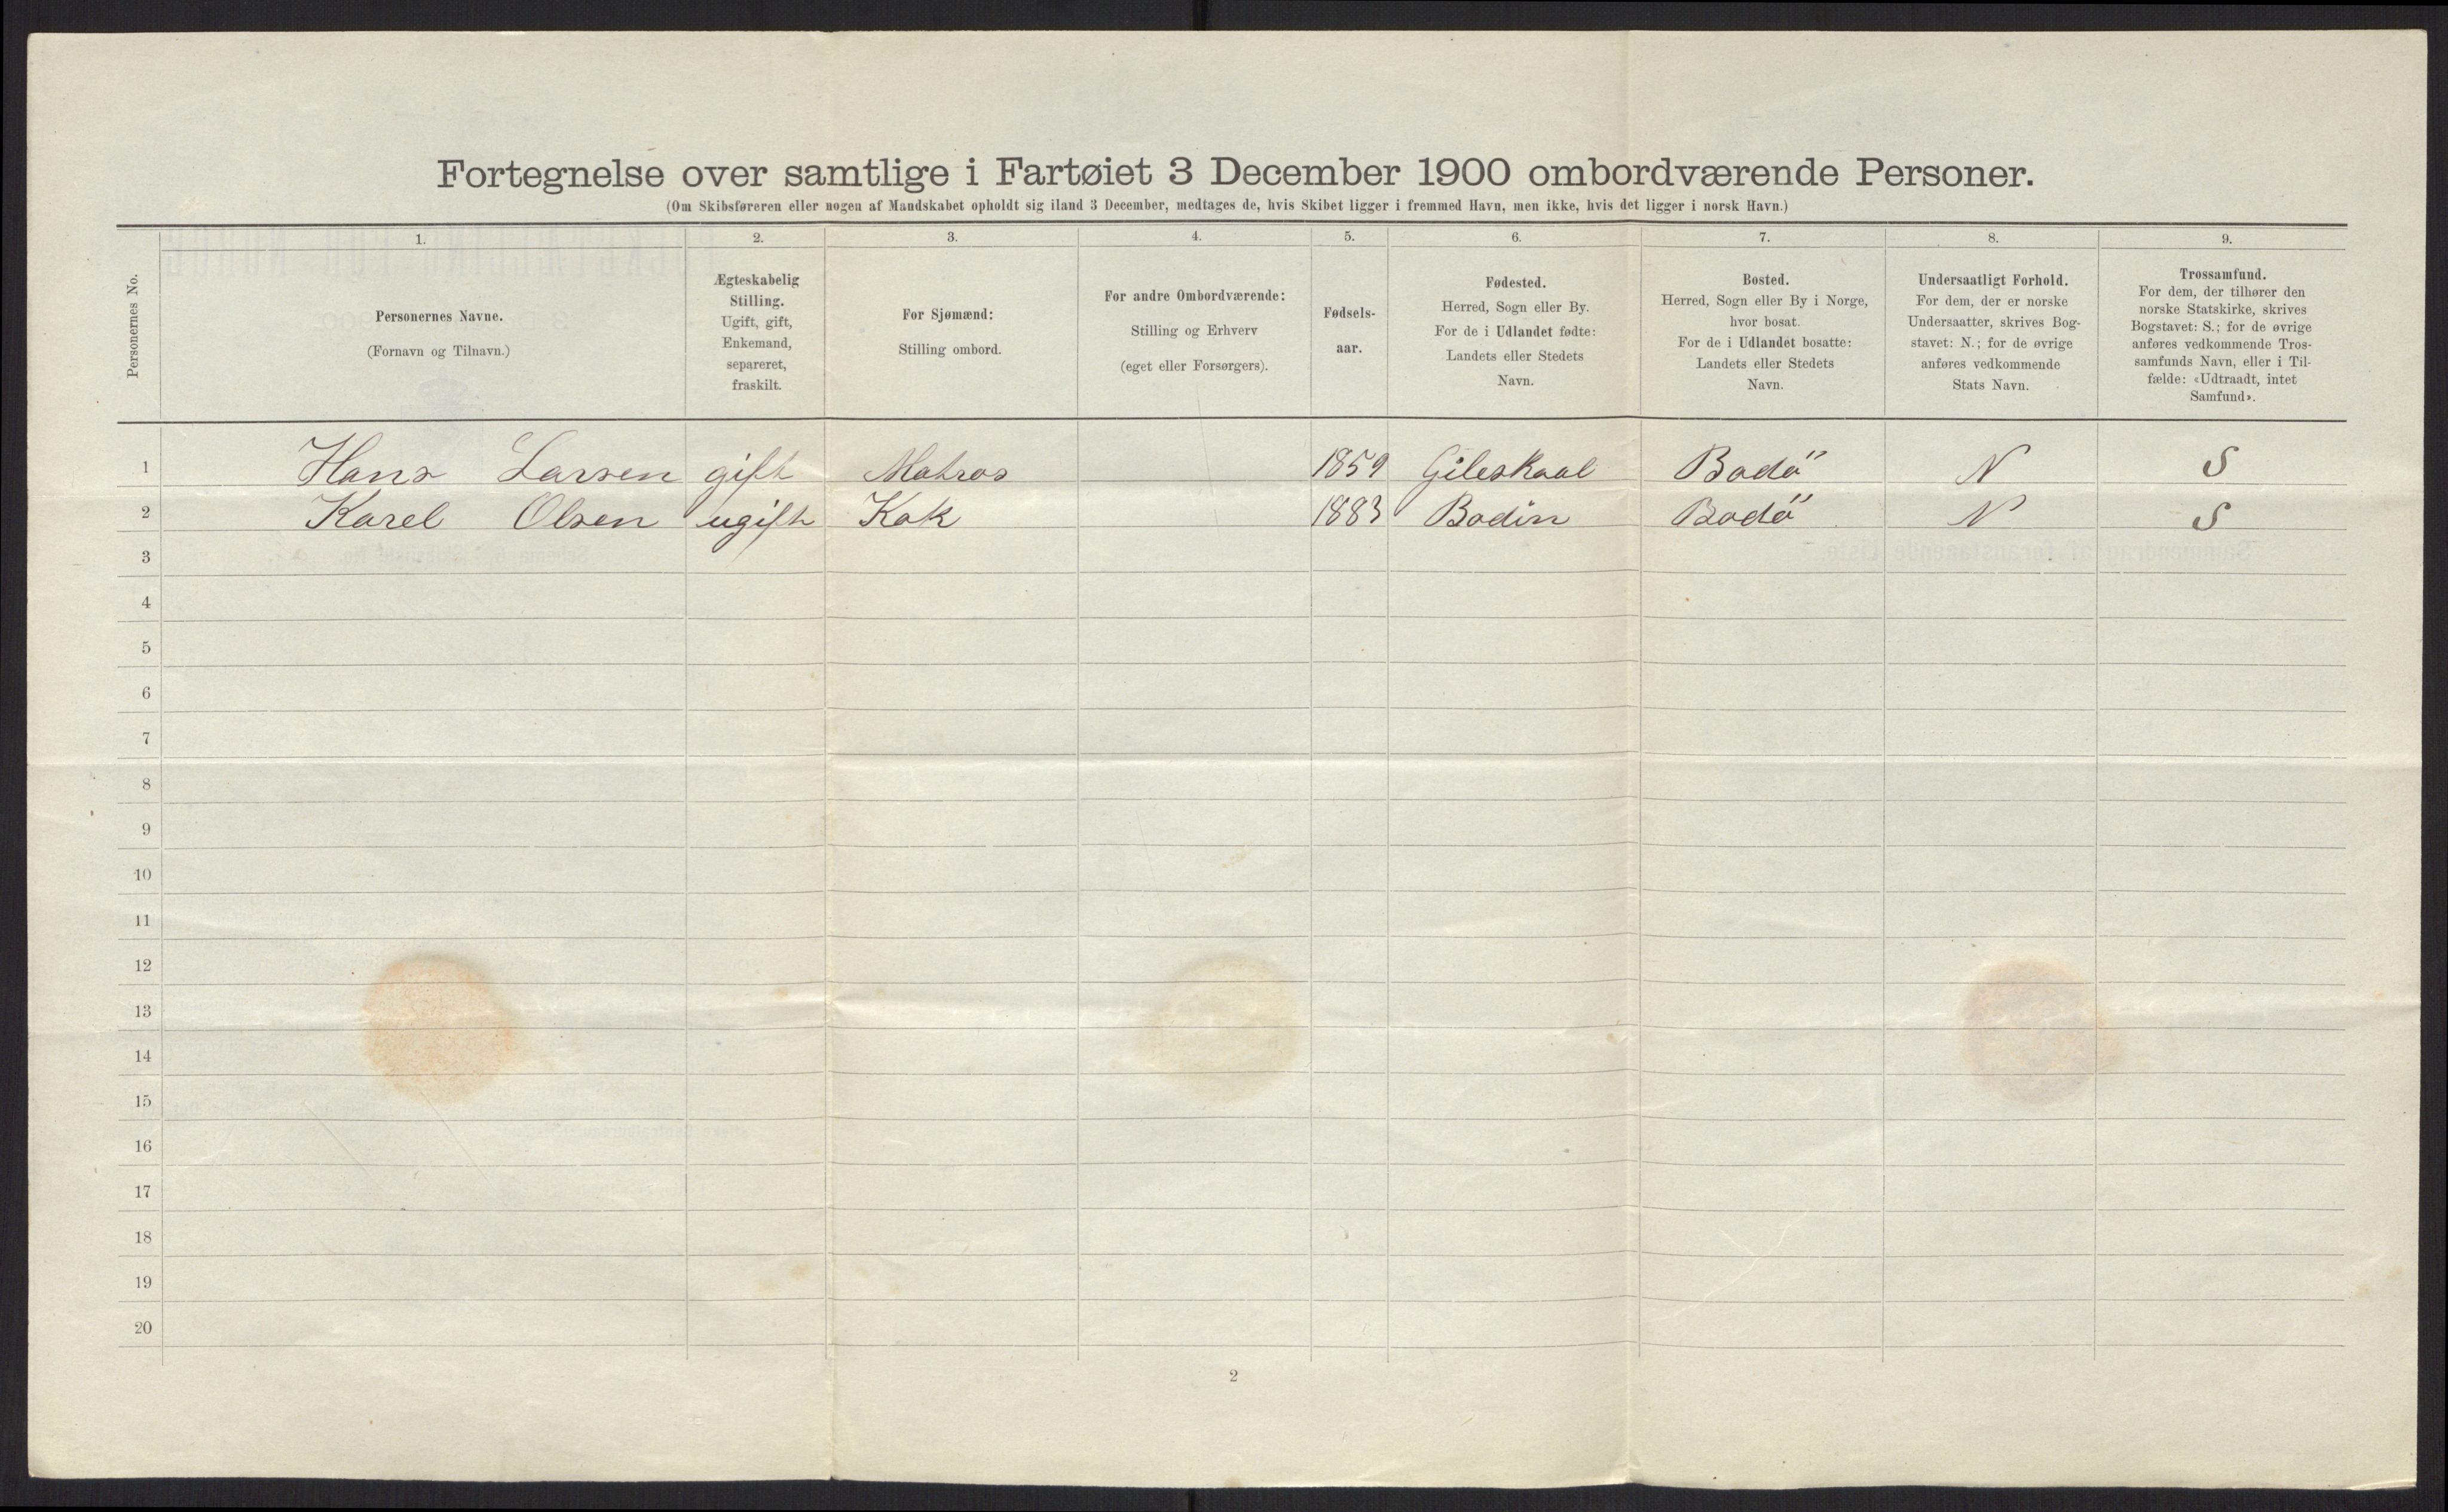 Fortegnelse over samtlige i Fartøiet 3 December 1900 ombordværende Personer.
(Om Skibsføreren eller nogen af Mandskabet opholdt sig iland 3 December, medtages de, hvis Skibet ligger i fremmed Havn, men ikke, hvis det ligger i norsk Havn.)
Personernes No.
1.
Personernes Navne.
(Fornavn og Tilnavn.)
2.
Ægteskabelig
Stilling.
Ugift, gift,
Enkemand,
separeret,
fraskilt.
3.
For Sjømænd:
Stilling ombord.
4.
For andre Ombordværende:
Stilling og Erhverv
(eget eller Forsørgers).
5.
Fødsels-
aar.
6.
Fødested.
Herred, Sogn eller By.
For de i Udlandet fødte:
Landets eller Stedets
Navn.
7.
Bosted.
Herred, Sogn eller By i Norge,
hvor bosat.
For de i Udlandet bosatte:
Landets eller Stedets
Navn.
8.
Undersaatligt Forhold.
For dem, der er norske
Undersaatter, skrives Bog-
stavet: N.; for de øvrige
anføres vedkommende
Stats Navn.
9.
Trossamfund.
For dem, der tilhører den
norske Statskirke, skrives
Bogstavet: S.; for de øvrige
anføres vedkommende Tros-
samfunds Navn, eller i Til-
fælde: «Udtraadt, intet
Samfund».
1 Hans Larsen gift Matros 1859 Gileskaal Bodö N S
2 Karel Olsen ugift Kok 1883 Bodin Bodö N S
3
4
5
6
7
8
9
10
11
12
13
14
15
16
17
18
19
20
2